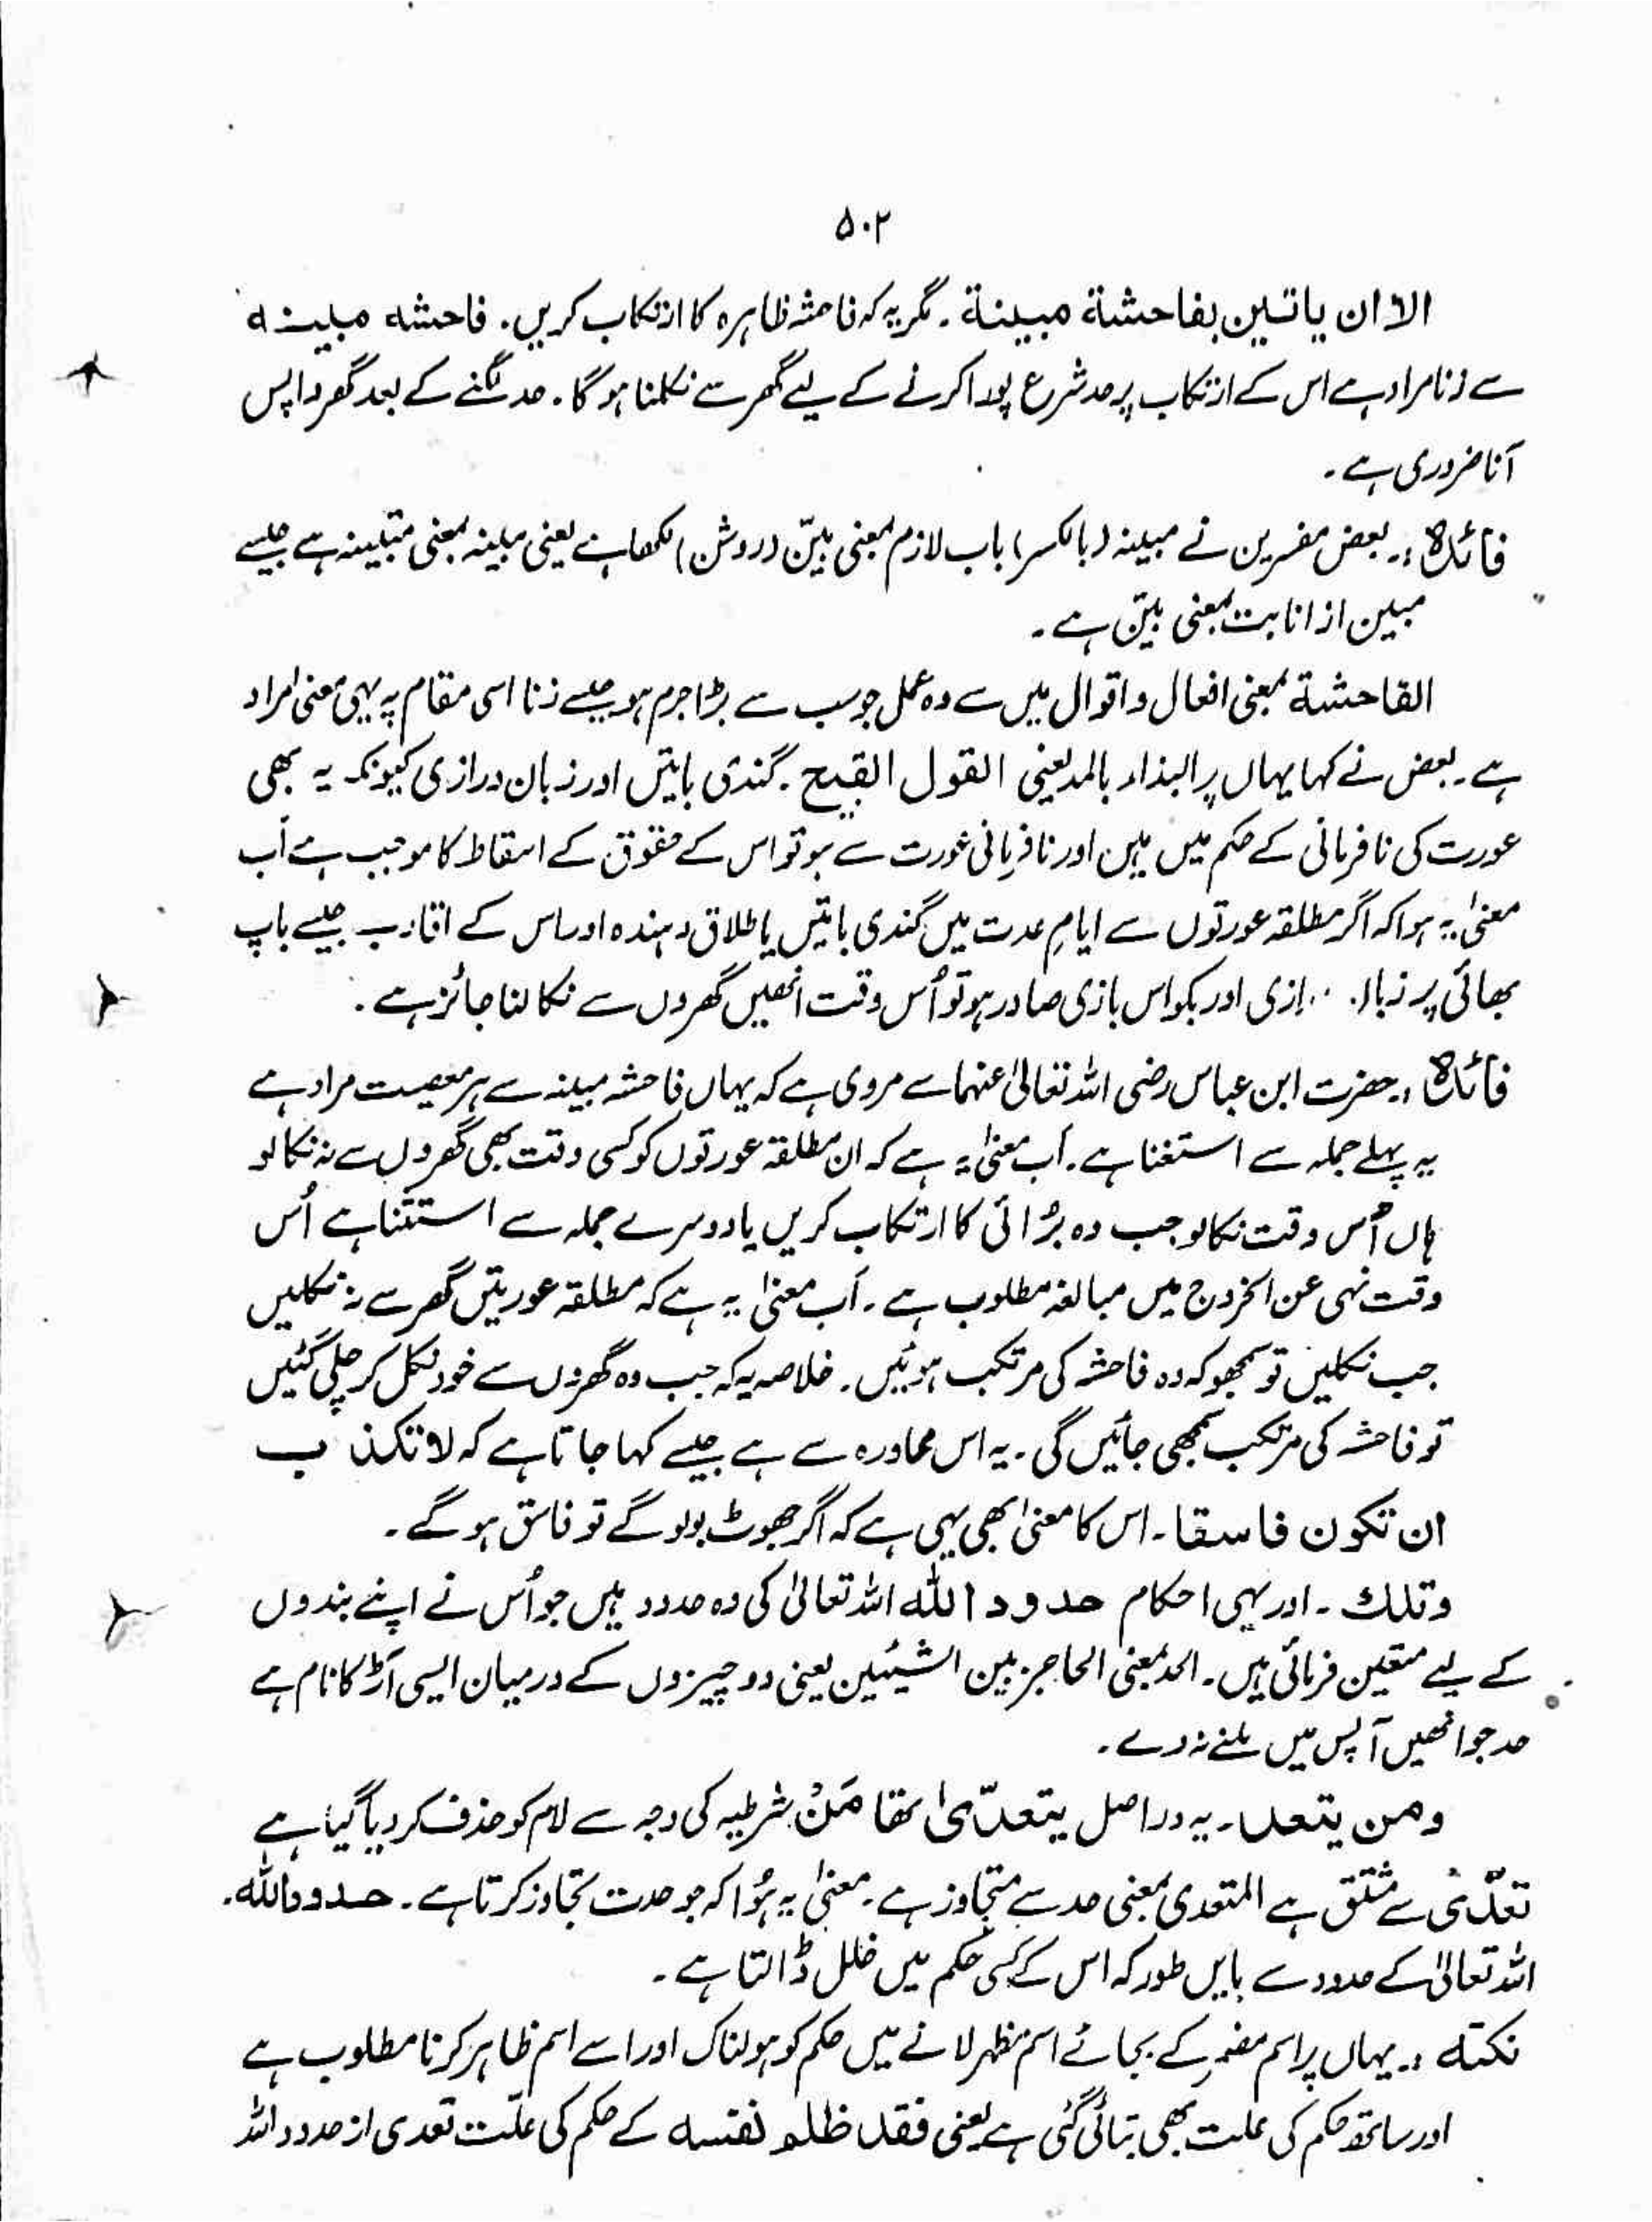 ۵۰۲
الا ان یاتین بفاحشة مبینة۔ مگر یہ کہ فاحشہ ظاہرہ کا ارتکاب کریں۔ فاحشه مبینه
سے زنا مراد ہے اس کے ارتکاب پر حد شرع پورا کرنے کے لیے گھر سے نکلنا ہوگا۔ حد لگنے کے بعد گھر واپس
آنا ضروری ہے۔
فائدہ :۔ بعض مفسرین نے مبینہ (بالکسر) باب لازم بمعنی بیّن (روشن) لکھا ہے یعنی مبینہ بمعنی متبینہ ہے جیسے
مبین از انابت بمعنی بیّن ہے۔
الفاحشة بمعنی افعال و اقوال میں سے وہ عمل جو سب سے بڑا جرم ہو جیسے زنا اسی مقام پہ یہی معنیٰ مراد
ہے۔ بعض نے کہا یہاں پر البذاء بالمد یعنی القول القبیح۔ گندی باتیں اور زبان درازی کیونکہ یہ بھی
عورت کی نافرمانی کے حکم میں ہیں اور نافرمانی عورت سے ہو تو اس کے حقوق کے اسقاط کا موجب ہے اَب
معنیٰ یہ ہوا کہ اگر مطلقہ عورتوں سے ایامِ عدت میں گندی باتیں یا طلاق دہندہ اور اس کے اقارب جیسے باپ
بھائی پر اور بکواس بازی صادر ہو تو اُس وقت انھیں گھروں سے نکالنا جائز ہے۔
فائدہ :۔ حضرت ابن عباس رضی اللہ تعالیٰ عنہما سے مروی ہے کہ یہاں فاحشہ مبینہ سے ہر معصیت مراد ہے
یہ پہلے جملہ سے استغنا ہے۔ اَب معنیٰ یہ ہے کہ ان مطلقہ عورتوں کو کسی وقت بھی گھروں سے نہ نکالو
ہاں اُس وقت نکالو جب وہ بُرائی کا ارتکاب کریں یا دوسرے جملہ سے استثنا ہے اُس
وقت نہی عن الخروج میں مبالغہ مطلوب ہے۔ اَب معنیٰ یہ ہے کہ مطلقہ عورتیں گھر سے نہ نکلیں
جب نکلیں تو سمجھو کہ وہ فاحشہ کی مرتکب ہوئیں۔ خلاصہ یہ کہ جب وہ گھروں سے خود نکل کر چلی گئیں
تو فاحشہ کی مرتکب سمجھی جائیں گی۔ یہ اس محاورہ سے ہے جیسے کہا جاتا ہے کہ لا تکذب
ان تکون فاسقا۔ اس کا معنیٰ بھی یہی ہے کہ اگر جھوٹ بولو گے تو فاسق ہو گے۔
وتلك۔ اور یہی احکام حدود اللّٰه اللہ تعالیٰ کی وہ حدود ہیں جو اُس نے اپنے بندوں
کے لیے متعین فرمائی ہیں۔ الحد بمعنی الحاجز بین الشیئین یعنی دو چیزوں کے درمیان ایسی آڑ کا نام ہے
حد جو انھیں آپس میں ملنے نہ دے۔
ومن یتعد۔ یہ دراصل یتعدّیٰ تھا مَنْ شرطیہ کی وجہ سے لام کو حذف کر دیا گیا ہے
تعدّی سے مشتق ہے المتعدی بمعنی حد سے متجاوز ہے۔ معنیٰ یہ ہُوا کہ جو حدت تجاوز کرتا ہے۔ حدود اللّٰه۔
اللہ تعالیٰ کے حدود سے بایں طور کہ اس کے کسی حکم میں خلل ڈالتا ہے۔
نکته :۔ یہاں پر اسم مضمر کے بجائے اسم مظہر لانے میں حکم کو ہولناک اور اسے اسم ظاہر کرنا مطلوب ہے
اور ساتھ حکم کی علت بھی بتائی گئی ہے یعنی فقد ظلم نفسه کے حکم کی علّت تعدی از حدود اللہ